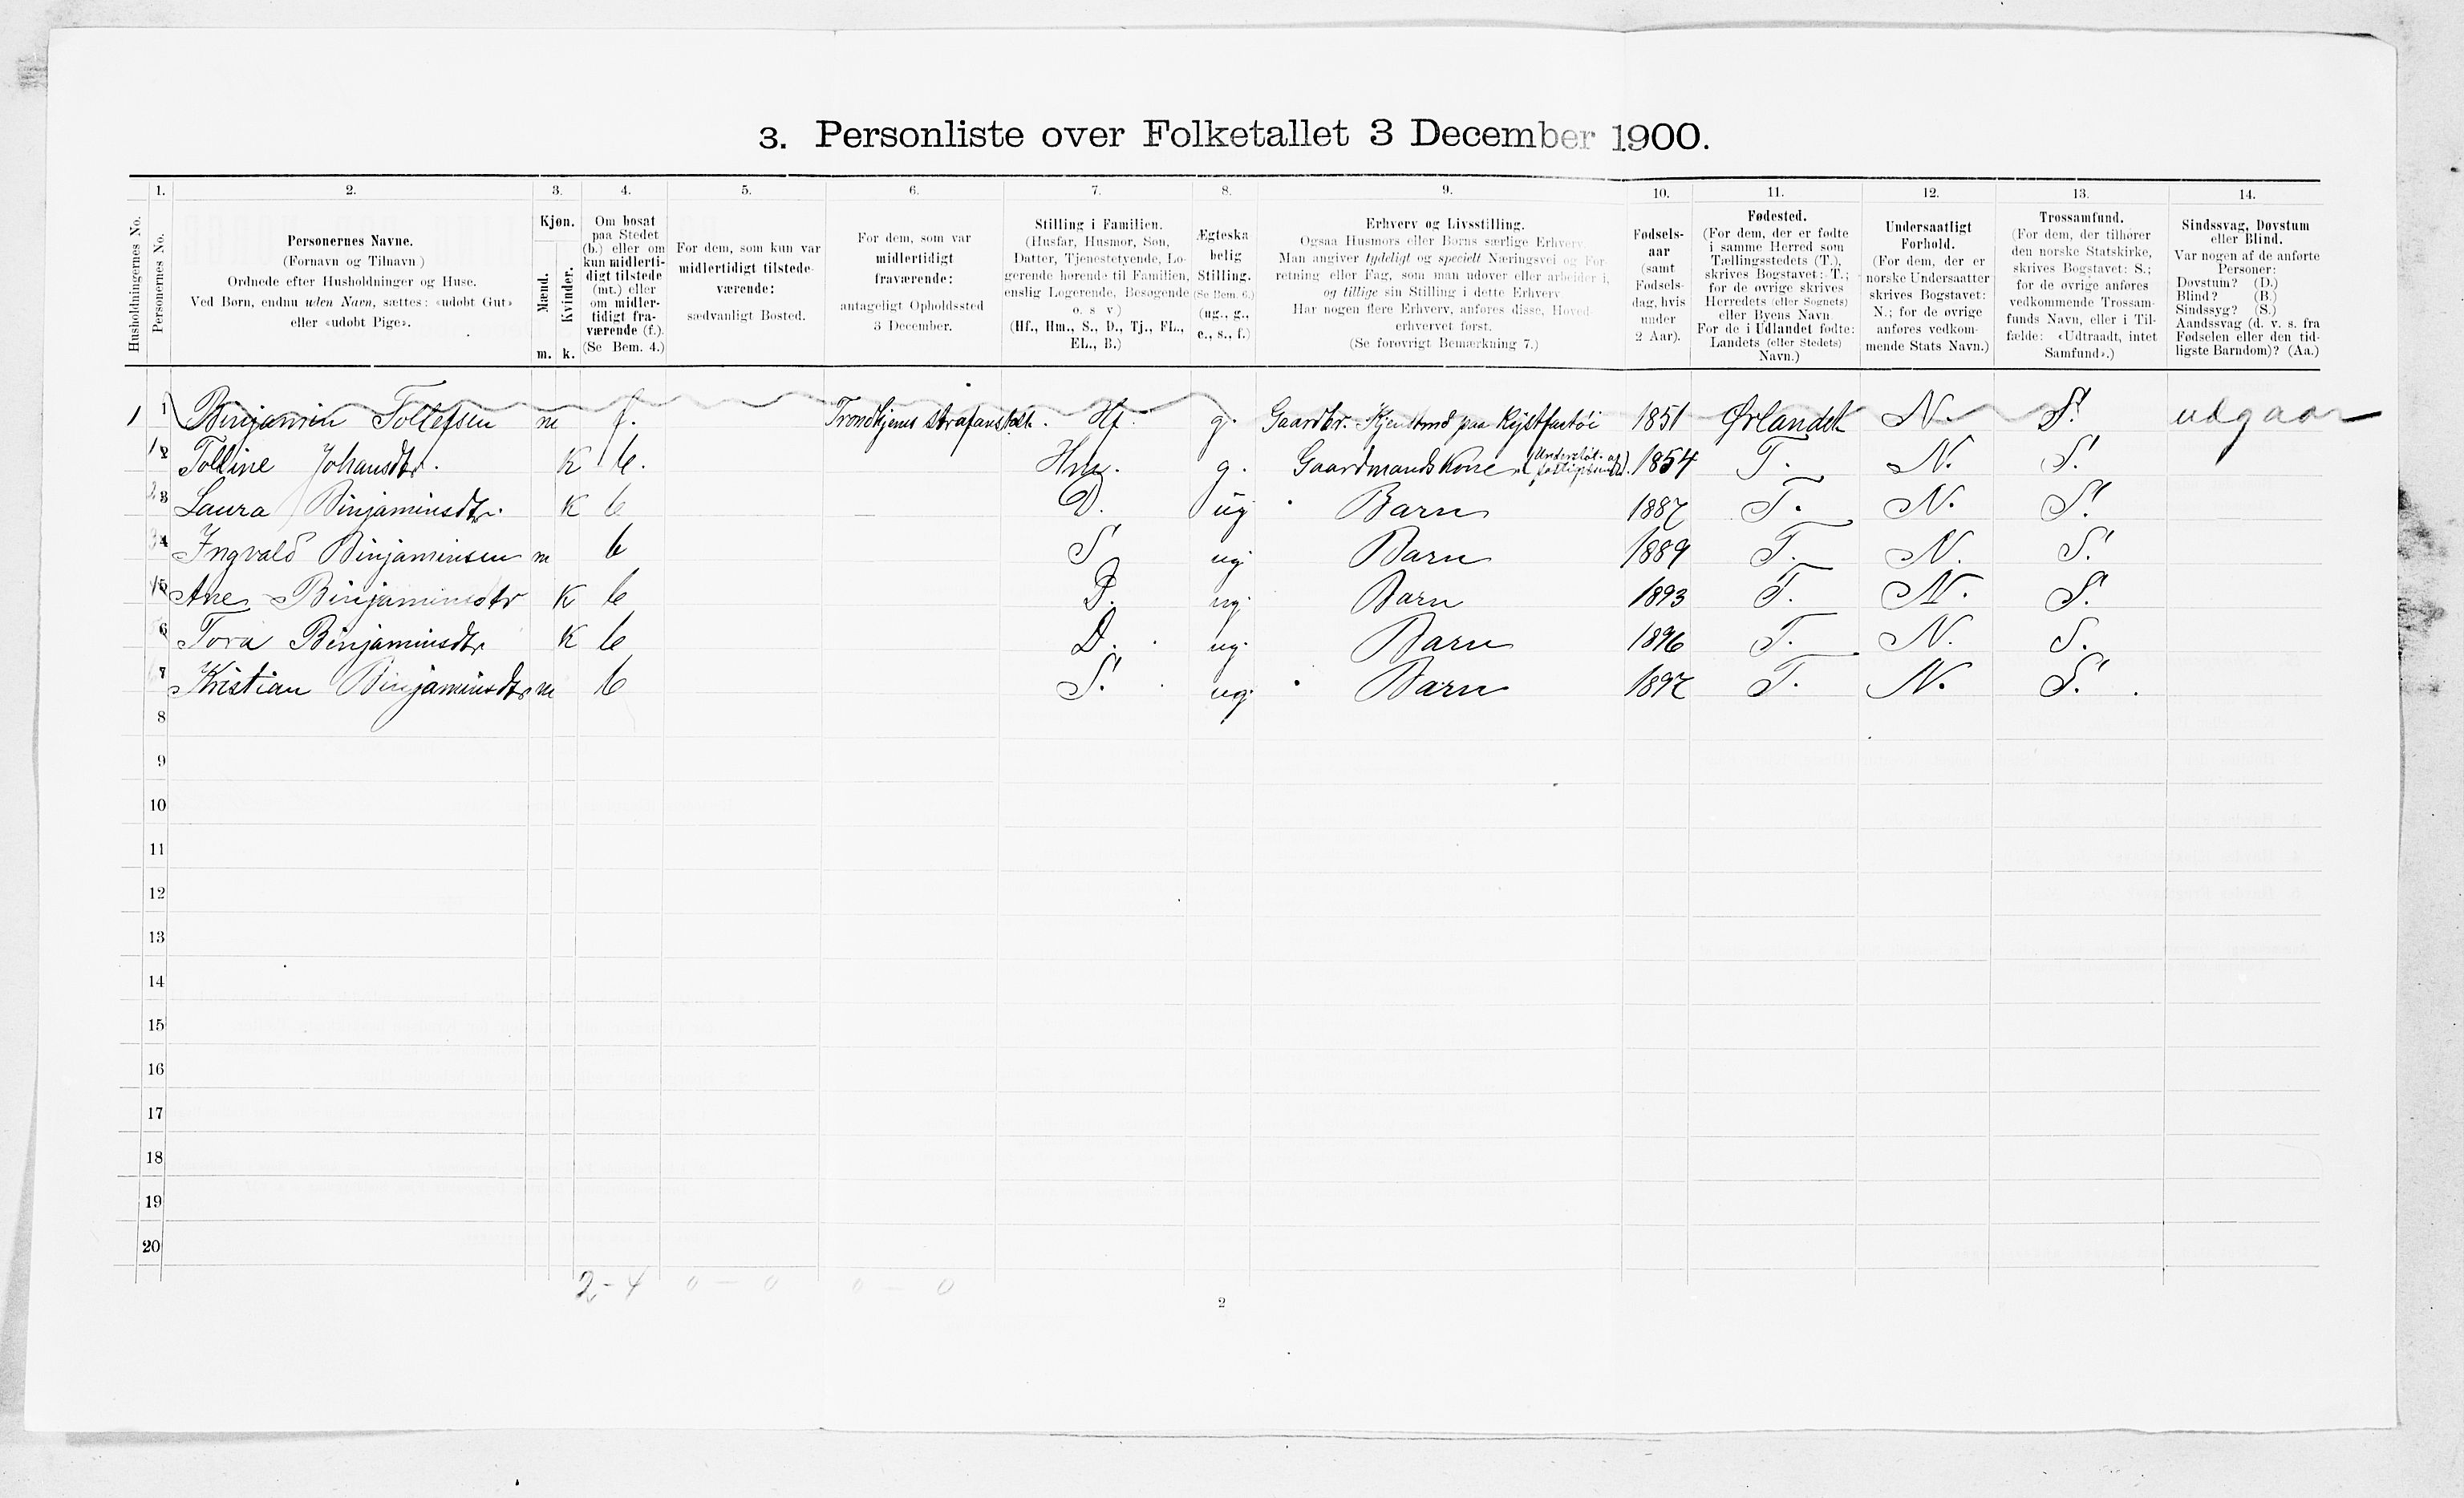 3. Personliste over Folketallet 3 December 1900.
1. 2. 3. 4. 5. 6. 7. 8. 9. 10. 11. 12. 13. 14.
Husholdningernes No.
Personernes No.
Personernes Navne.
(Fornavn og Tilnavn)
Ordnede efter Husholdninger og Huse.
Ved Børn, endnu uden Navn, sættes: «udøbt Gut»
eller «udøbt Pige».
Kjøn.
Mænd.
Kvinder.
m. k.
Om bosat
paa Stedet
(b.) eller om
kun midlerti-
digt tilstede
(mt.) eller
om midler-
tidigt fra-
værende (f.).
(Se Bem. 4.)
For dem, som kun var
midlertidigt tilstede-
værende:
sædvanligt Bosted.
For dem, som var
midlertidigt
fraværende:
antageligt Opholdssted
3 December.
Stilling i Familien.
(Husfar, Husmor, Søn,
Datter, Tjenestetyende, Lo-
gerende hørende til Familien,
enslig Logerende, Besøgende
o. s v)
(Hf., Hm., S., D., Tj., FL.,
EL., B.)
Ægteska
belig
Stilling.
(Se Bem. 6.)
(ug., g.,
e., s., f.)
Erhverv og Livsstilling.
Ogsaa Husmors eller Børns særlige Erhverv.
Man angiver tydeligt og specielt Næringsvei og For-
retning eller Fag, som man udøver eller arbeider i,
og tillige sin Stilling i dette Erhverv
Har nogen flere Erhverv, anføres disse, Hoved-
erhvervet først.
(Se forøvrigt Bemærkning 7.)
Fødsels-
aar
(samt
Fødsels-
dag, hvis
under
2 Aar).
Fødested.
(For dem, der er fødte
i samme Herred som
Tællingsstedets (T.),
skrives Bogstavet: T.;
for de øvrige skrives
Herredets (eller Sognets)
eller Byens Navn
For de i Udlandet fødte:
Landets (eller Stedets)
Navn.)
Undersaatligt
Forhold.
(For dem, der er
norske Undersaatter
skrives Bogstavet:
N.; for de øvrige
anføres vedkom-
mende Stats Navn.)
Trossamfund.
(For dem, der tilhører
den norske Statskirke,
skrives Bogstavet: S.;
for de øvrige anføres
vedkommende Trossam-
funds Navn, eller i Til-
fælde: «Udtraadt, intet
Samfund».)
Sindssvag, Døvstum
eller Blind.
Var nogen af de anførte
Personer:
Døvstum? (D.)
Blind? (B.)
Sindssyg? (S.)
Aandssvag (d. v. s. fra
Fødselen eller den tid-
ligste Barndom)? (Aa.)
1 1 Binjamin Tollefsen m f. Trondhjems strafanstalt. Hf. g. Gaardbr. 1851 Ørlandet N. S. udgaar
2 Tolline Johansdtr. K b. Hm. g. Gaardmandskone 1854 T. N. S.
3 Laura Binjaminsdtr. K b D. ug Barn 1887 T. N. S.
4 Ingvald Binjaminsen m b S. ug Barn 1889 T. N. S.
5 Ane Binjaminsdtr K b D. ug. Barn 1893 T. N. S.
6 Tora Binjaminsdtr K b D. ug. Barn 1896 T. N. S.
7 Kristian Binjaminsdtr m b S. ug. Barn 1897 T. N. S.
8
9
10
11
12
13
14
15
16
17
18
19
20
2 - 4 0 - 0 0 - 0
2